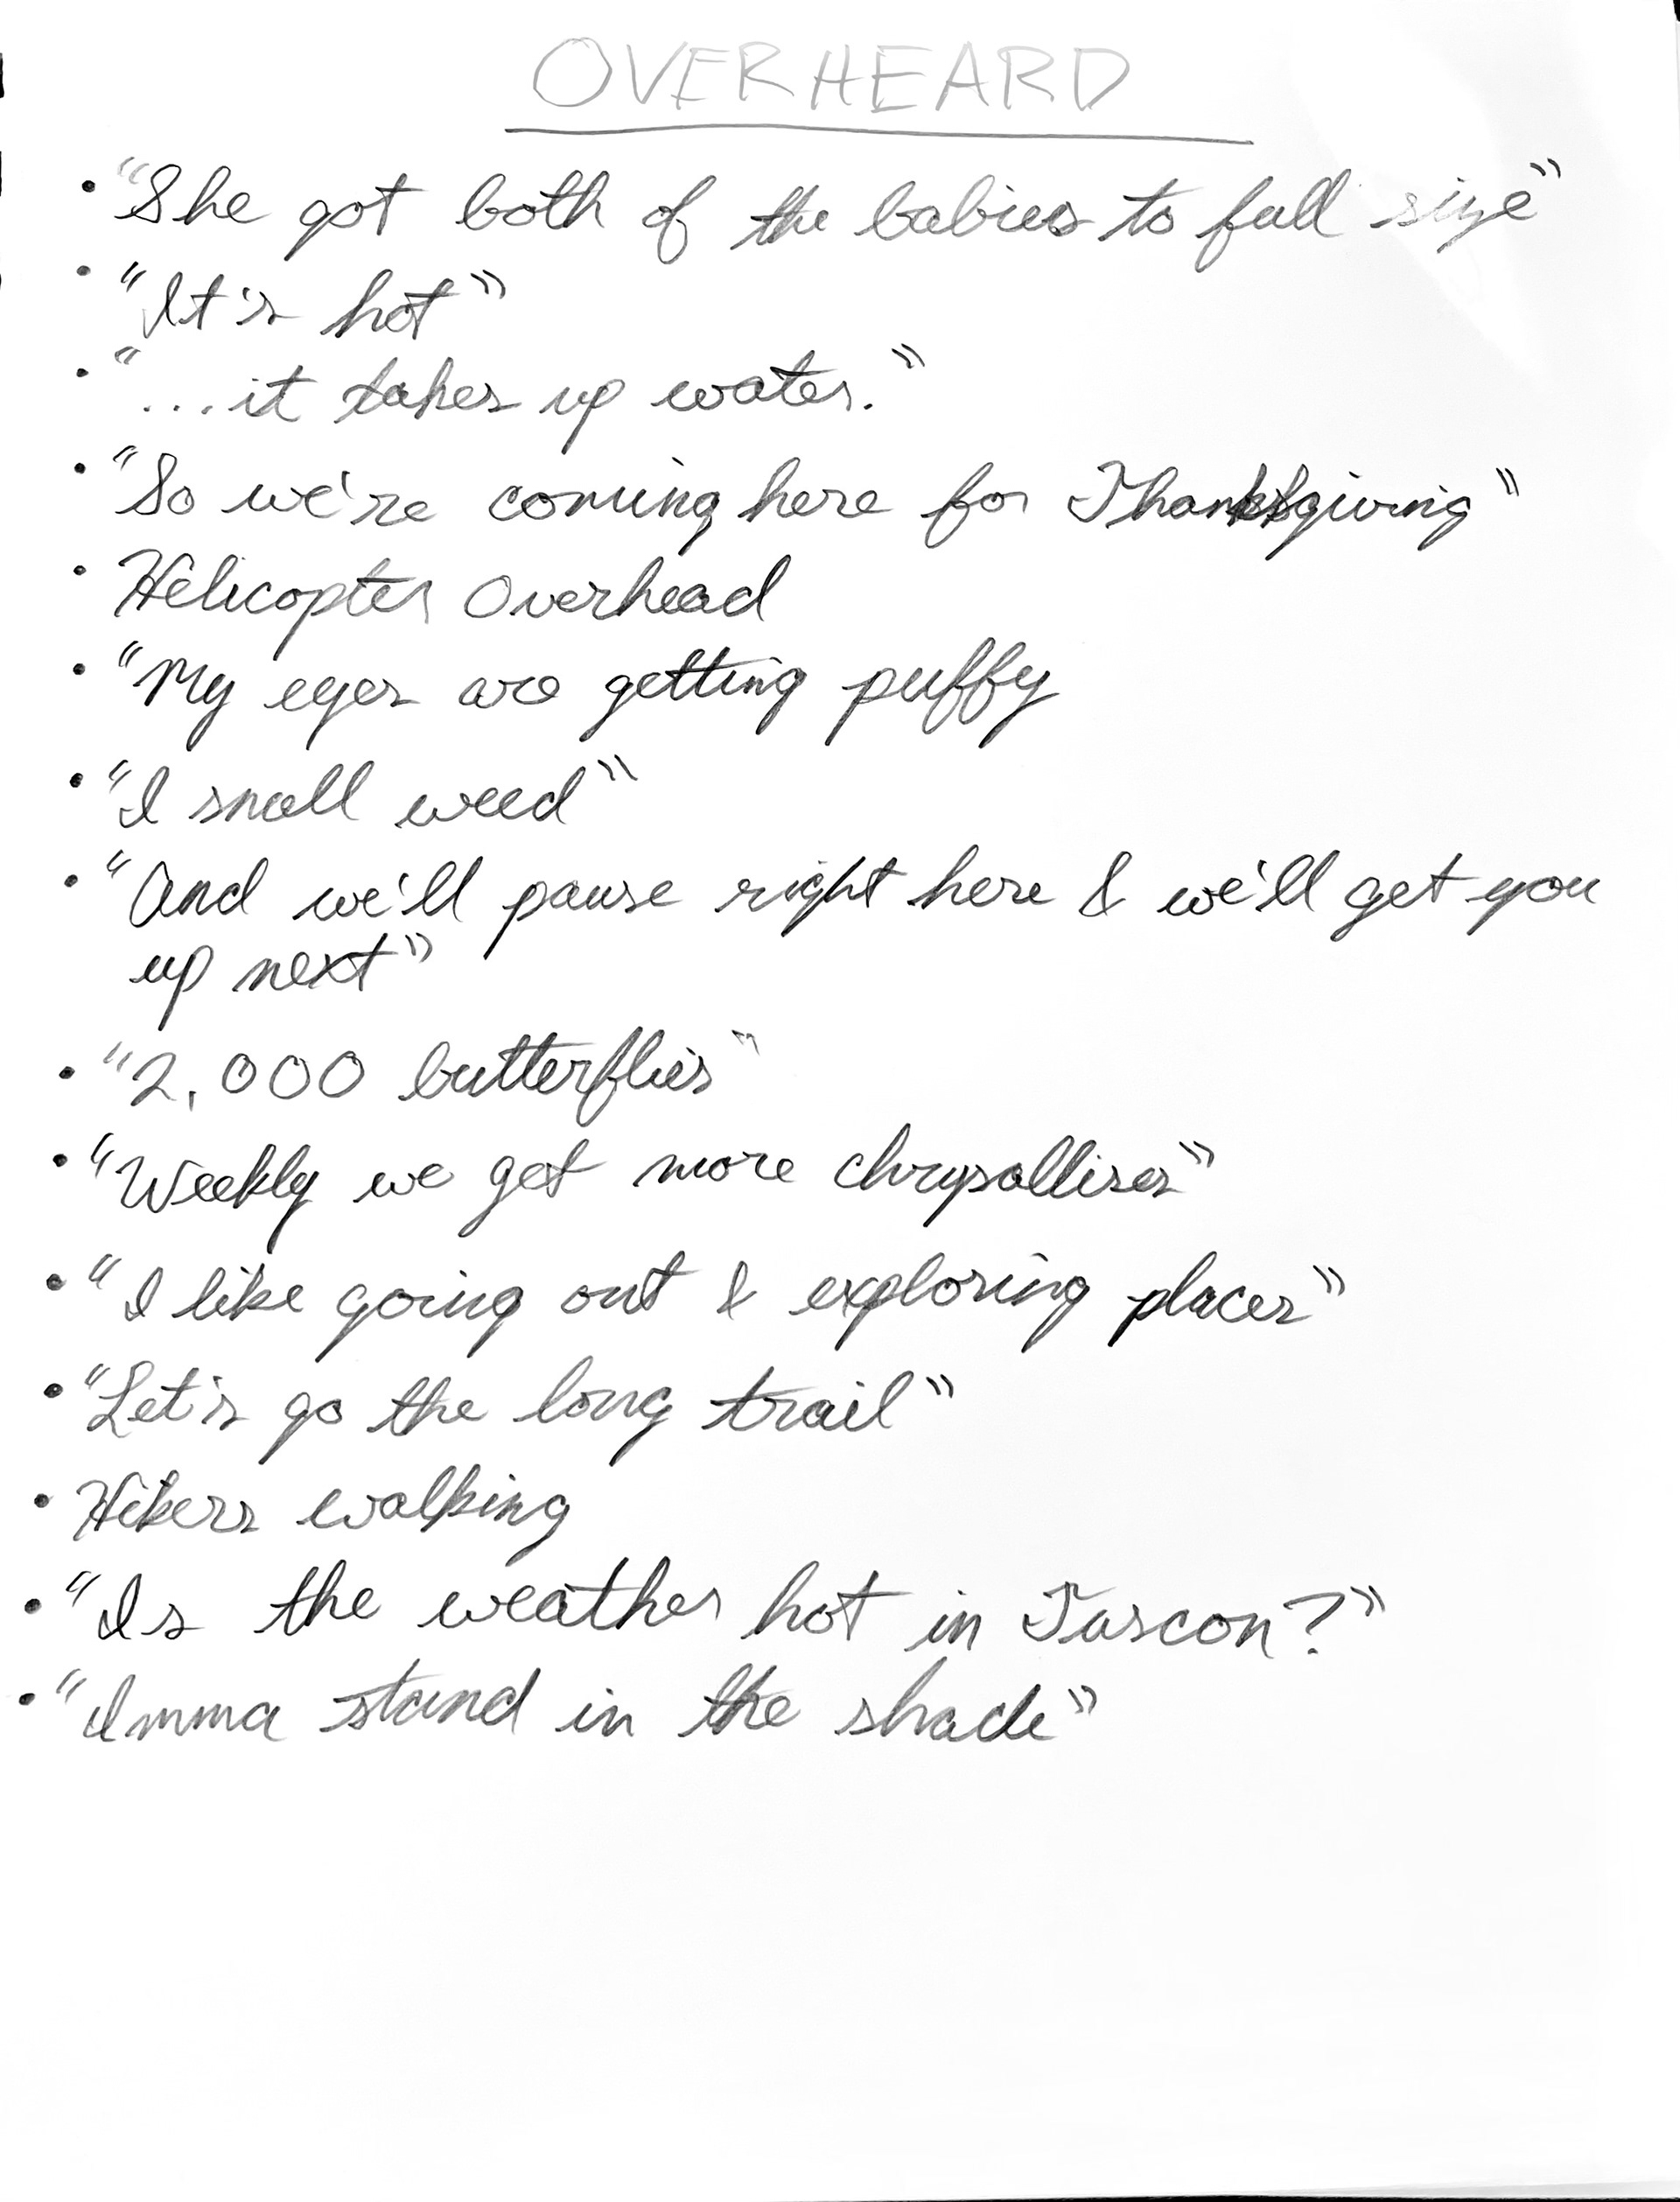 OVERHEARD
• "She got both of the babies to full size"
• "It's hot"
• "...it takes up water."
• "So we're coming here for Thanksgiving"
• Helicopter Overhead
• "My eyes are getting puffy
• "I smell weed"
• "And we'll pause right here & we'll get you
up next"
• "2,000 butterflies"
• "Weekly we get more chrysallises"
• "I like going out & exploring places"
• "Let's go the long trail"
• Hikers walking
• "Is the weather hot in Tuscon?"
• "Imma stand in the shade"